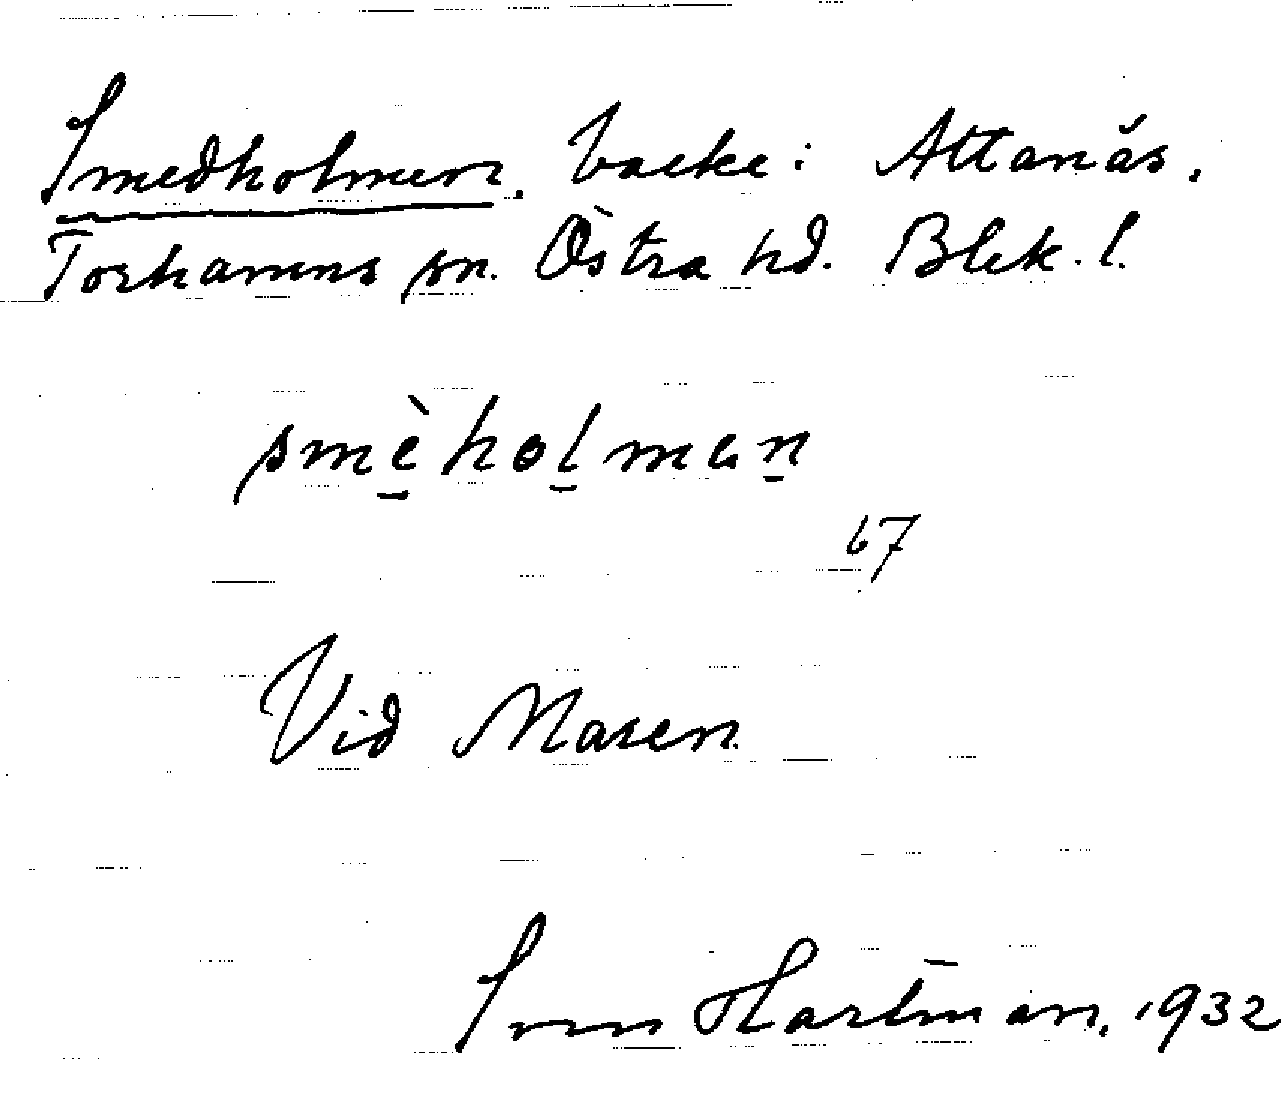 Smedholmen. backe: Attanäs.
Torhamns sn. Östra hd. Blek. l.
smè̱hoḻmaṉ
67
Vid Maren
Sven Hartman. 1932